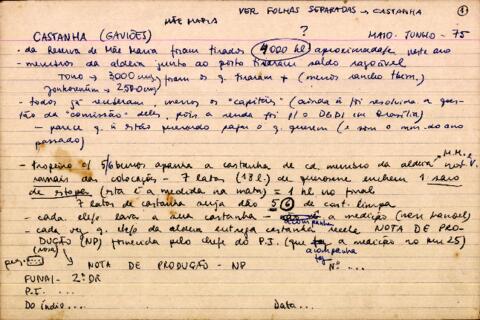 VER FOLHAS SEPARADAS → CASTANHA
1
MÃE MARIA
CASTANHA (GAVIÕES)
?
MAIO-JUNHO - 75
- da Reserva de Mãe Maria foram tirados 4000 hl aproximadate neste ano
- meninos da aldeia junto ao posto tiveram saldo razoável
Tono → 3000 foram os q. tiraram + (menos rancho
2500
- todos já receberam, menos os "capitães" (ainda ñ foi resolvida a ques-
tão da "comissão" deles, pois a renda foi p/ o DGPI em Brasília)
- parece q. ñ estão pegando papo o q. querem (e sem o do ano
passado)
- tropeiro c/ 5/6 burros apanha a castanha de cd. membro da aldeia
ramais das colocações - 7 latas (18 l.) de querosene enchem 1 saco
de estopa (esta é a medida na mata) = 1 hl no final
7 latas de castanha suja dão 5 6 de cast. limpa
- cada elefo lava a sua castanha - acompanha a medição (nem
- cada vez q. elefo da aldeia entrega castanha recebe NOTA DE PRO-
DUÇÃO (NP) fornecida pelo chefe do P.I. (que faz a medição no km 25)
(nova)
acompanha
faz
NOTA DE PRODUÇÃO - NP
Nº ...
FUNAI - 2ª DR
P.I. ...
Do índio...
Data...